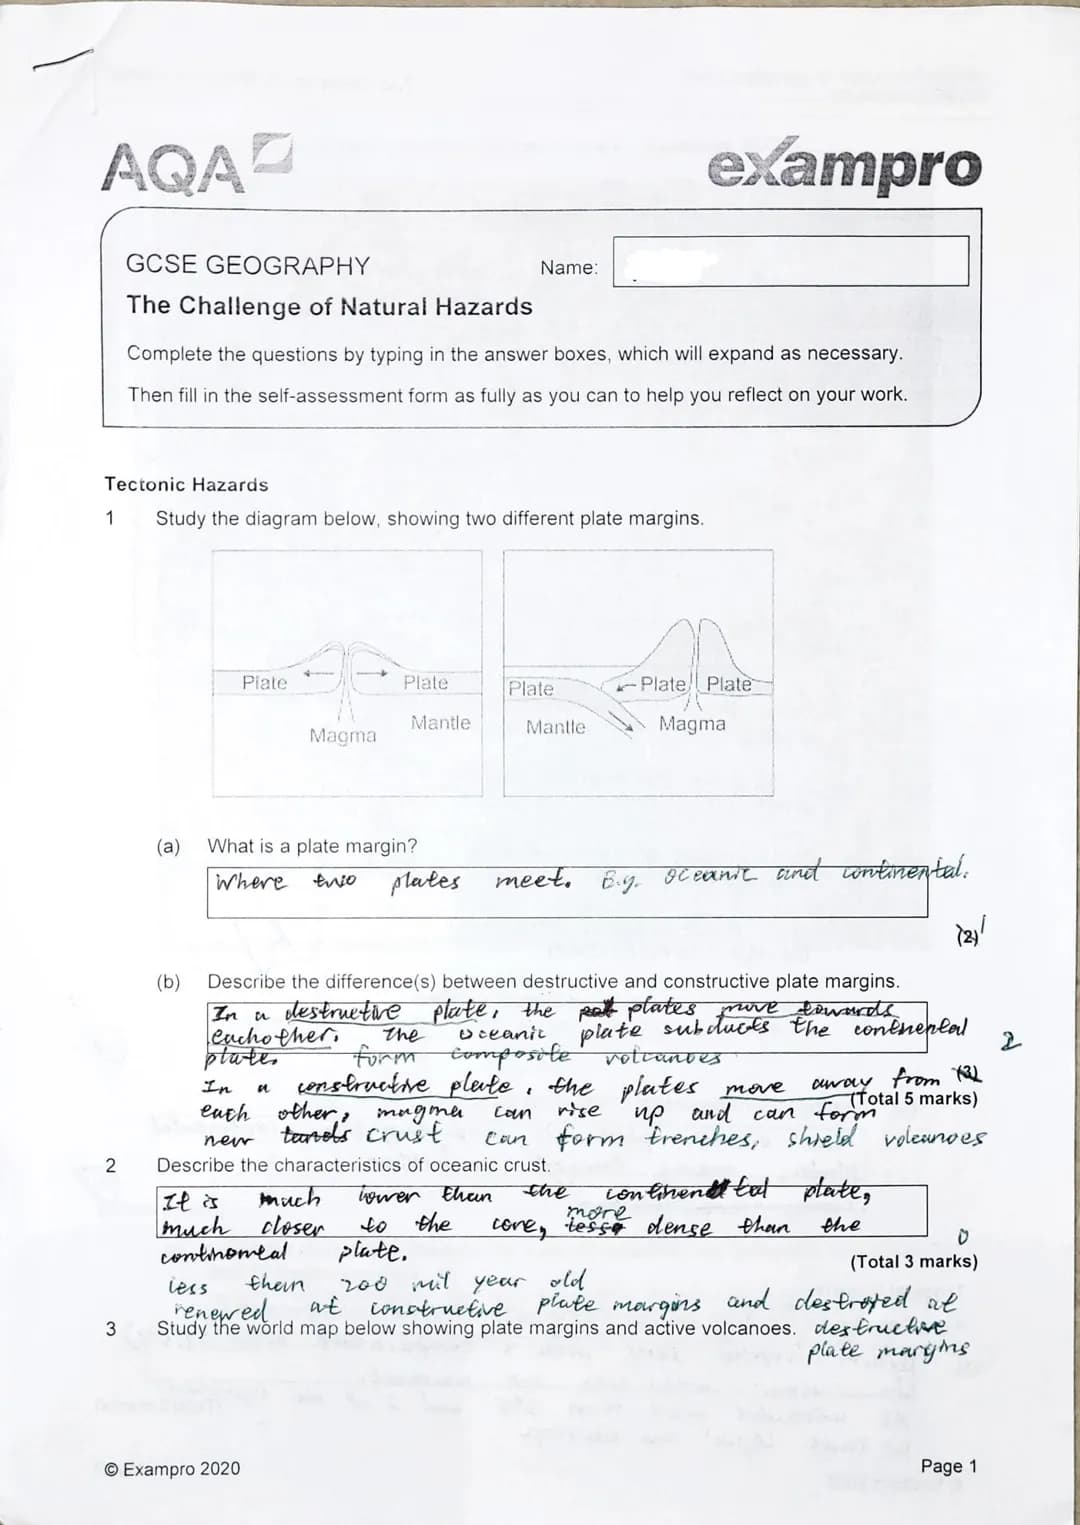 AQA exampro
GCSE GEOGRAPHY Name:
The Challenge of Natural Hazards
Complete the questions by typing in the answer boxes, which will expand as necessary.
Then fill in the self-assessment form as fully as you can to help you reflect on your work.
Tectonic Hazards
1 Study the diagram below, showing two different plate margins.
Plate Plate Plate Plate Plate
Magma Mantle Mantle Magma
(a) What is a plate margin?
Where two plates meet. E.g. oceanic and continental.
(2) 1
(b) Describe the difference(s) between destructive and constructive plate margins.
In a destructive plate, the plates move towards
eachother. The oceanic plate subducts the continental 2
plate. form composite volcanoes
In a constructive plate, the plates move away from (3)
(Total 5 marks)
each other, magma can rise up and can form
new crust can form trenches, shield volcanoes
2 Describe the characteristics of oceanic crust.
It is much lower than the continental plate,
much closer to the core, more dense than the
continental plate. 0
(Total 3 marks)
less than 200 mil year old
renewed at constructive plate margins and destroyed at
3 Study the world map below showing plate margins and active volcanoes. destructive
plate margins
© Exampro 2020 Page 1